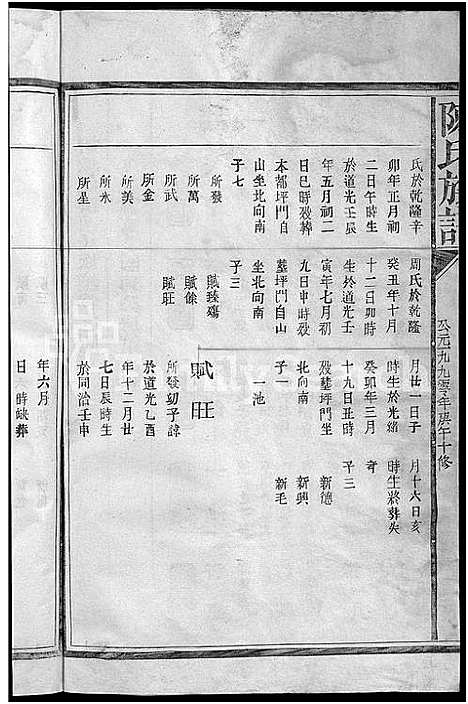 陳氏族譜
公元一九九零年庚午十修
氏於乾隆辛
卯年正月初
二日午時生
於道光壬辰
年五月初二
日巳時歿葬
本都坪門自
山坐北向南
子七
所發
所萬
所武
所金
所美
所水
所星
周氏於乾隆
癸丑年十月
十二日卯時
生於道光壬
寅年七月初
九日申時歿
墓坪門自山
坐北向南
子三
賦臻殤
賦餘
賦旺
月廿一日子
時生於光緒
癸卯年三月
十九日丑時
歿墓坪門坐
北向南
子一
一池
賦旺
所發幼子諱
於道光乙酉
年十二月廿
七日辰時生
於同治壬申
月十六日亥
時生將葬失
考
子三
新德
新興
新毛
年六月
日 時缺葬